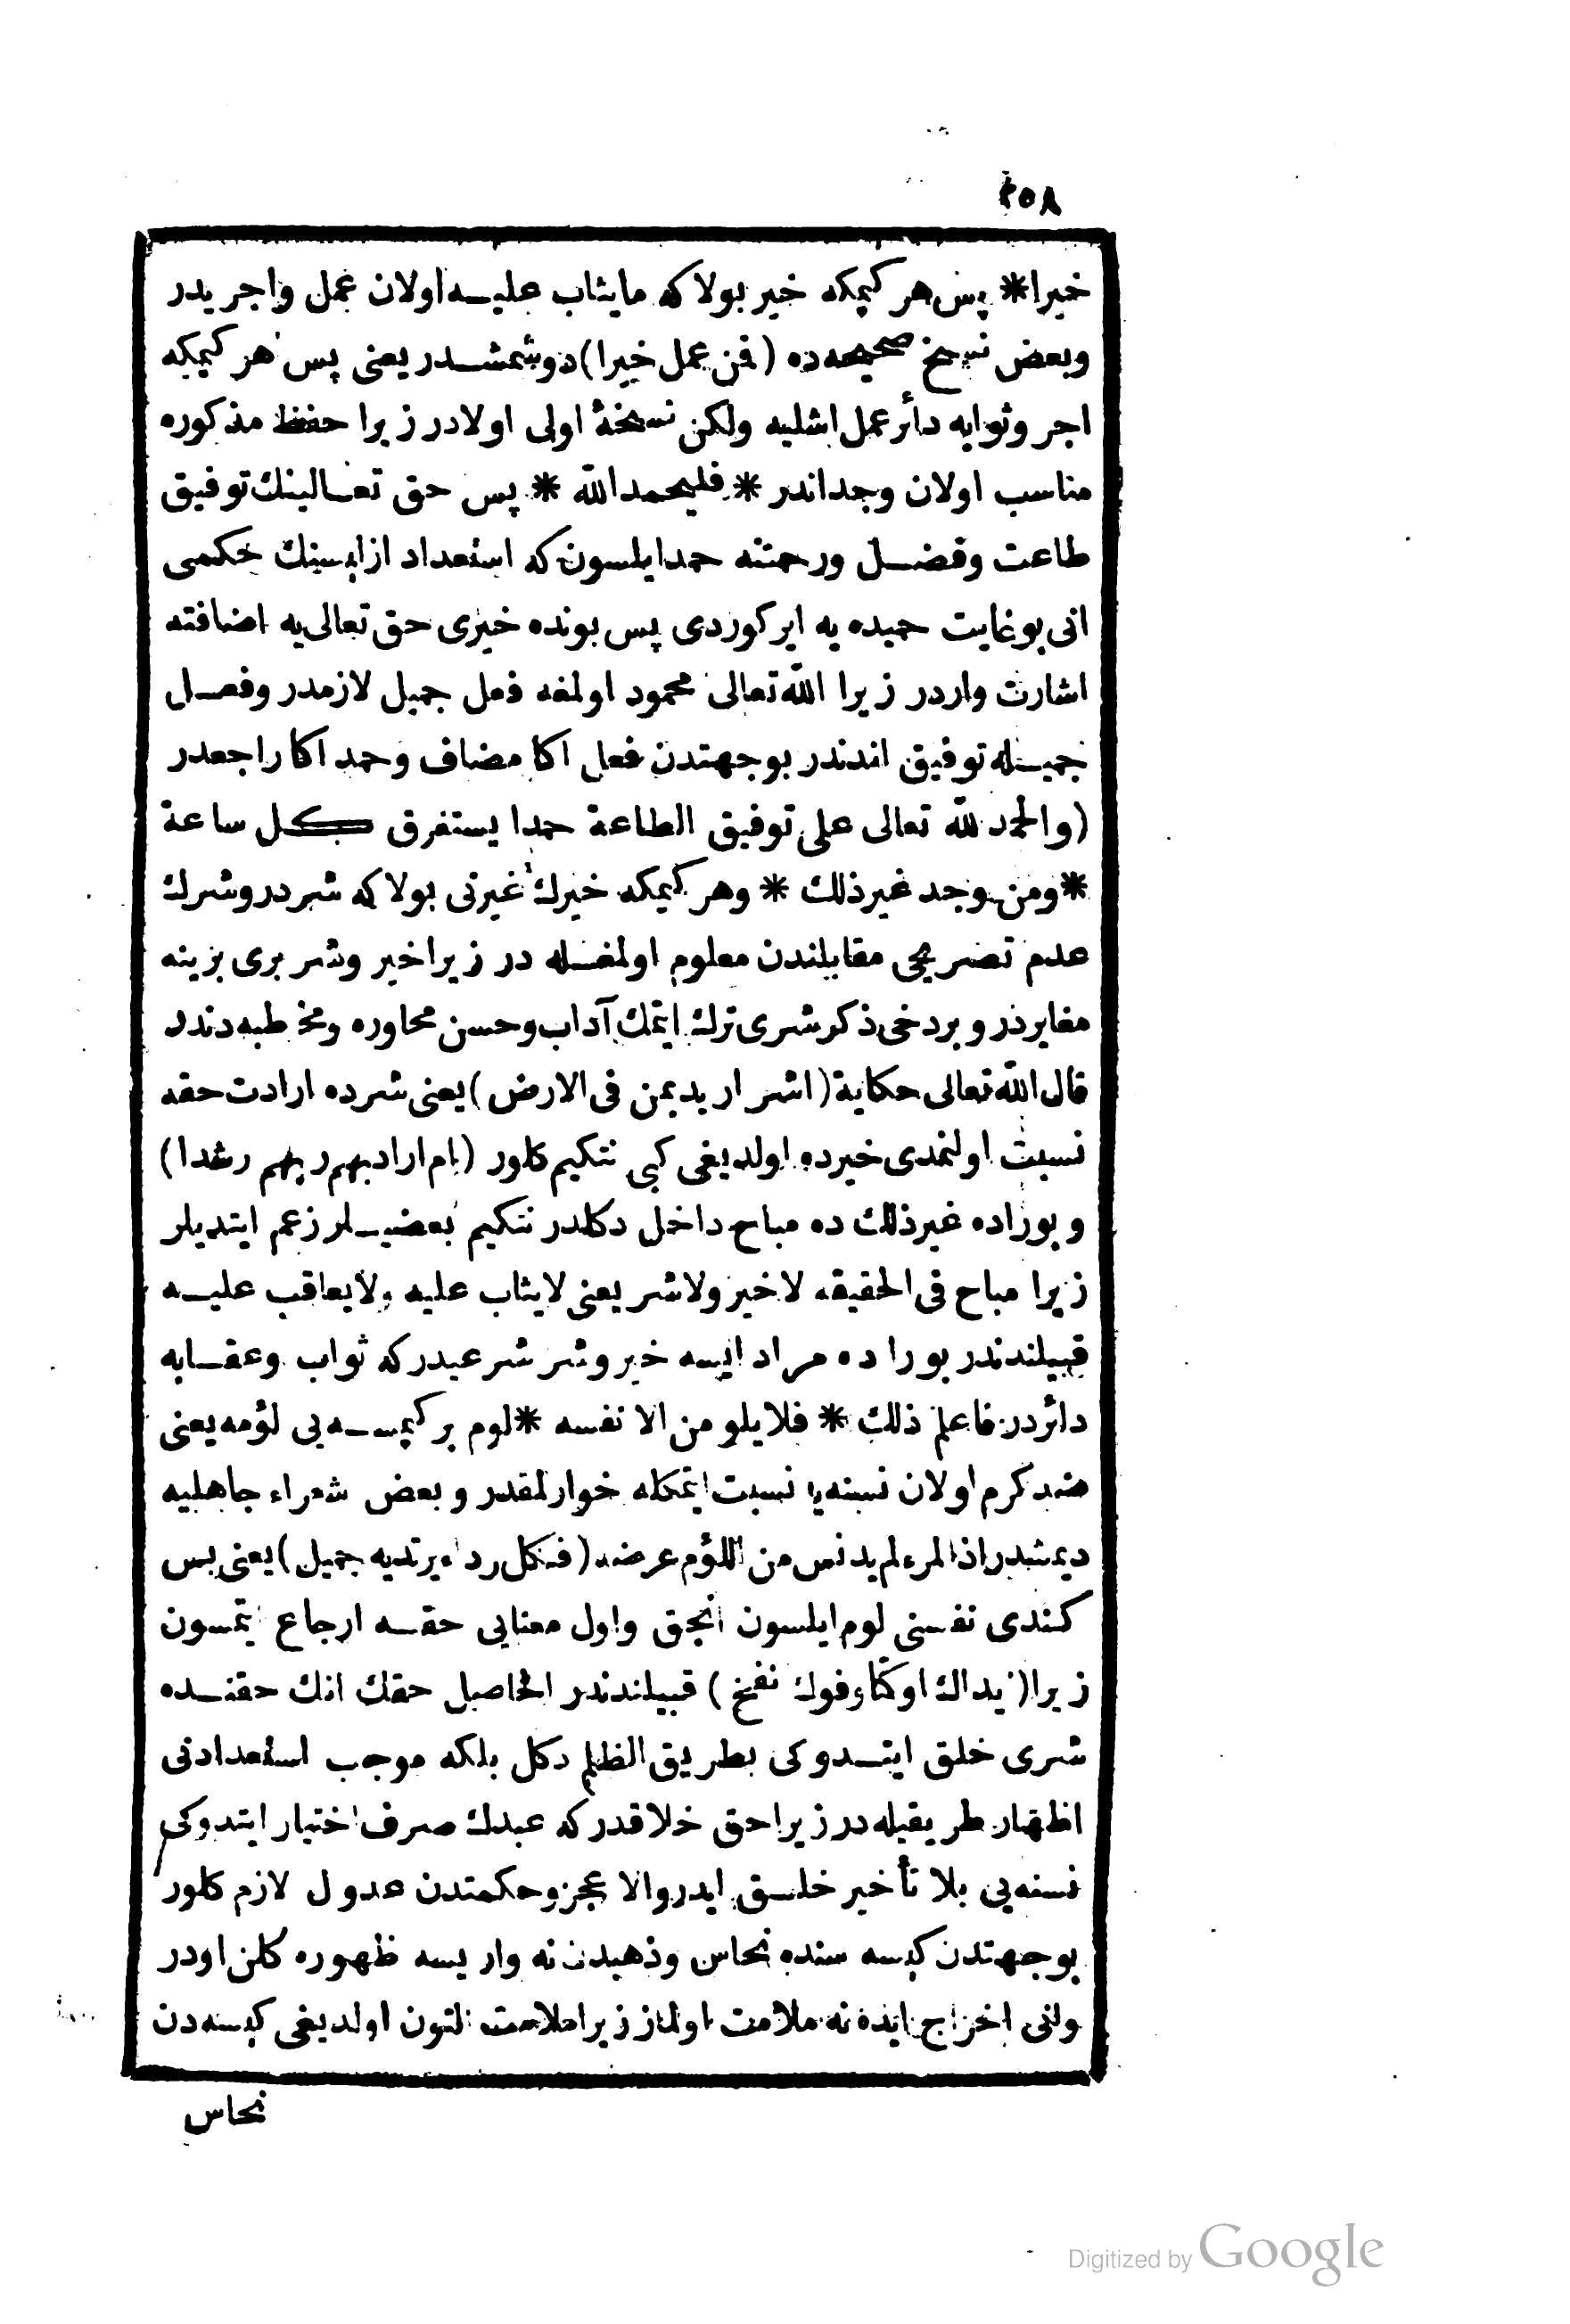 ٢٥٨
خيرا* پس هر كيمكه خير بولا كه مايثاب عليه اولان عمل واجريدر
وبعض نسخ صحيحه ده (فمن عمل خيرا) دوشمشدر يعنى پس هر كيمكه
اجر وثوابه دائر عمل اشليه ولكن نسخۀ اولى اولادر زيرا حفظ مذكوره
مناسب اولان وجداندر * فليحمد الله * پس حق تعالينك توفيق
طاعت وفضل ورحمتنه حمد ايلسون كه استعداد ازليسنك حكمى
انى بو غايت حميده يه ايركوردى پس بونده خيرى حق تعالى يه اضافته
اشارت واردر زيرا الله تعالى محمود اولمغه فعل جميل لازمدر وفعل
جميله توفيق اندندر بو جهتدن فعل اكا مضاف وحمد اكا راجعدر
(والحمد لله تعالى على توفيق الطاعة حمدا يستغرق بكل ساعة
*ومن وجد غير ذلك * وهر كيمكه خيرك غيرنى بولا كه شردر وشرك
عدم تصريحى مقابلندن معلوم اولمغله در زيرا خير وشر برى برينه
مغايردر وبر دخى ذكر شرى ترك ايتمك آداب وحسن محاوره ومخاطبه دندر
قال الله تعالى حكاية (اشر اريد بمن فى الارض) يعنى شرده ارادت حقه
نسبت اولنمدى خيرده اولديغى كبى نتكيم كلور (ام اراد بهم ربهم رشدا)
وبوراده غير ذلك ده مباح داخل دكلدر نتكيم بعضيلر زعم ايتديلر
زيرا مباح فى الحقيقه لا خير ولا شر يعنى لا يثاب عليه ولا يعاقب عليه
قبيلندندر بوراده مراد ايسه خير وشر شرعيدر كه ثواب وعقابه
دائردر فاعلم ذلك * فلا يلومن الا نفسه *لوم بر كيمسه يى لؤمه يعنى
ضد كرم اولان نسنه يه نسبت ايتمكله خوارلمقدر وبعض شعراء جاهليه
ديمشدر اذا المرء لم يدنس من اللؤم عرضه (فكل رداء يرتديه جميل) يعنى پس
كندى نفسنى لوم ايلسون انجق واول معنايى حقه ارجاع ايتمسون
زيرا (يداك اوكتا وفوك نفخ) قبيلندندر الحاصل حقك انك حقنده
شرى خلق ايتدوكى بطريق الظلم دكل بلكه موجب استعدادنى
اظهار طريقيله در زيرا حق خلاقدر كه عبدك صرف اختيار ايتدوكى
نسنه يى بلا تأخير خلق ايدر والا عجز وحكمتدن عدول لازم كلور
بو جهتدن كيسه سنده نحاس وذهبدن نه وار يسه ظهوره كلن اودر
وانى اخراج ايدنه ملامت اولماز زيرا ملامت التون اولديغى كيسه دن
نحاس
Digitized by Google